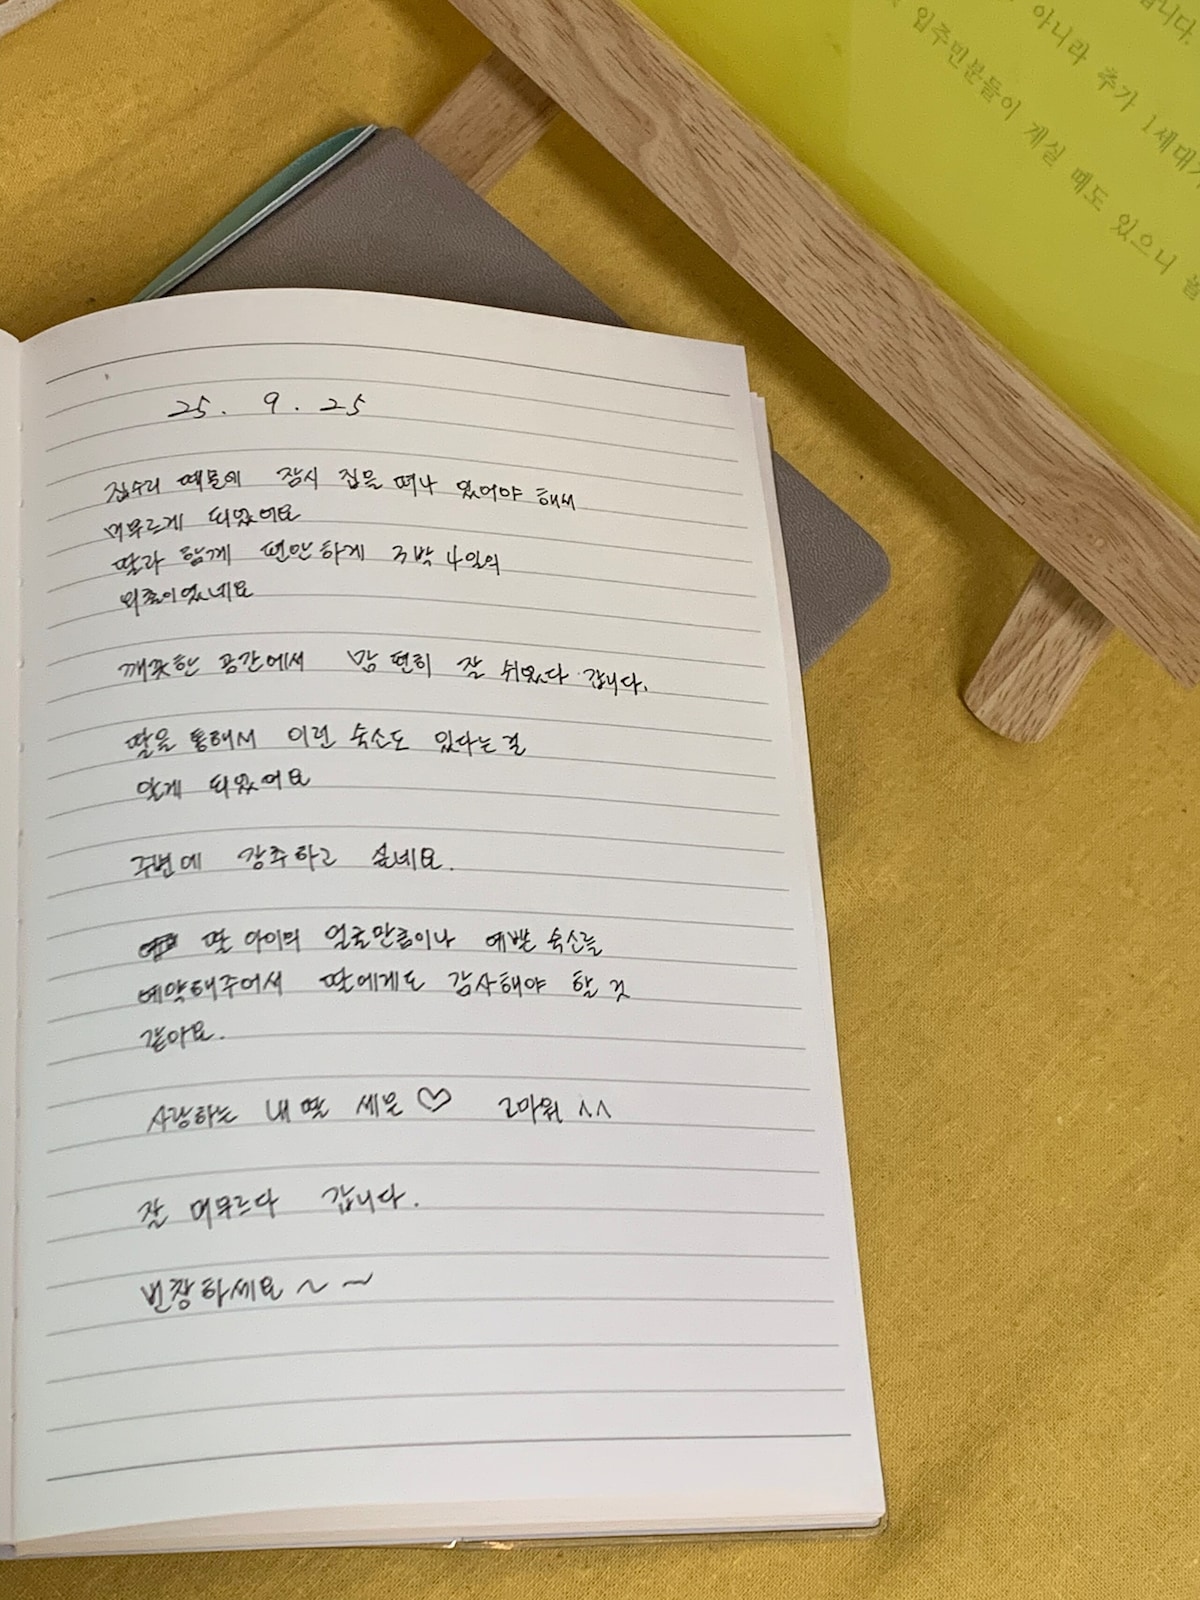 습니다.
아니라 추가 1세대가
입주민분들이 계실 때도 있으니 놀
25. 9. 25
집수리 때문에 잠시 집을 떠나 있어야 해서
머무르게 되었어요
딸과 함께 편안하게 3박 4일의
외출이었네요
깨끗한 공간에서 맘 편히 잘 쉬었다 갑니다.
딸을 통해서 이런 숙소도 있다는 걸
알게 되었어요
주변에 강추하고 싶네요.
딸 아이의 얼굴만큼이나 예쁜 숙소를
예약해주어서 딸에게도 감사해야 할 것
같아요.
사랑하는 내 딸 세은 ♡ 고마워 ^^
잘 머무르다 갑니다.
번창하세요 ~ ~